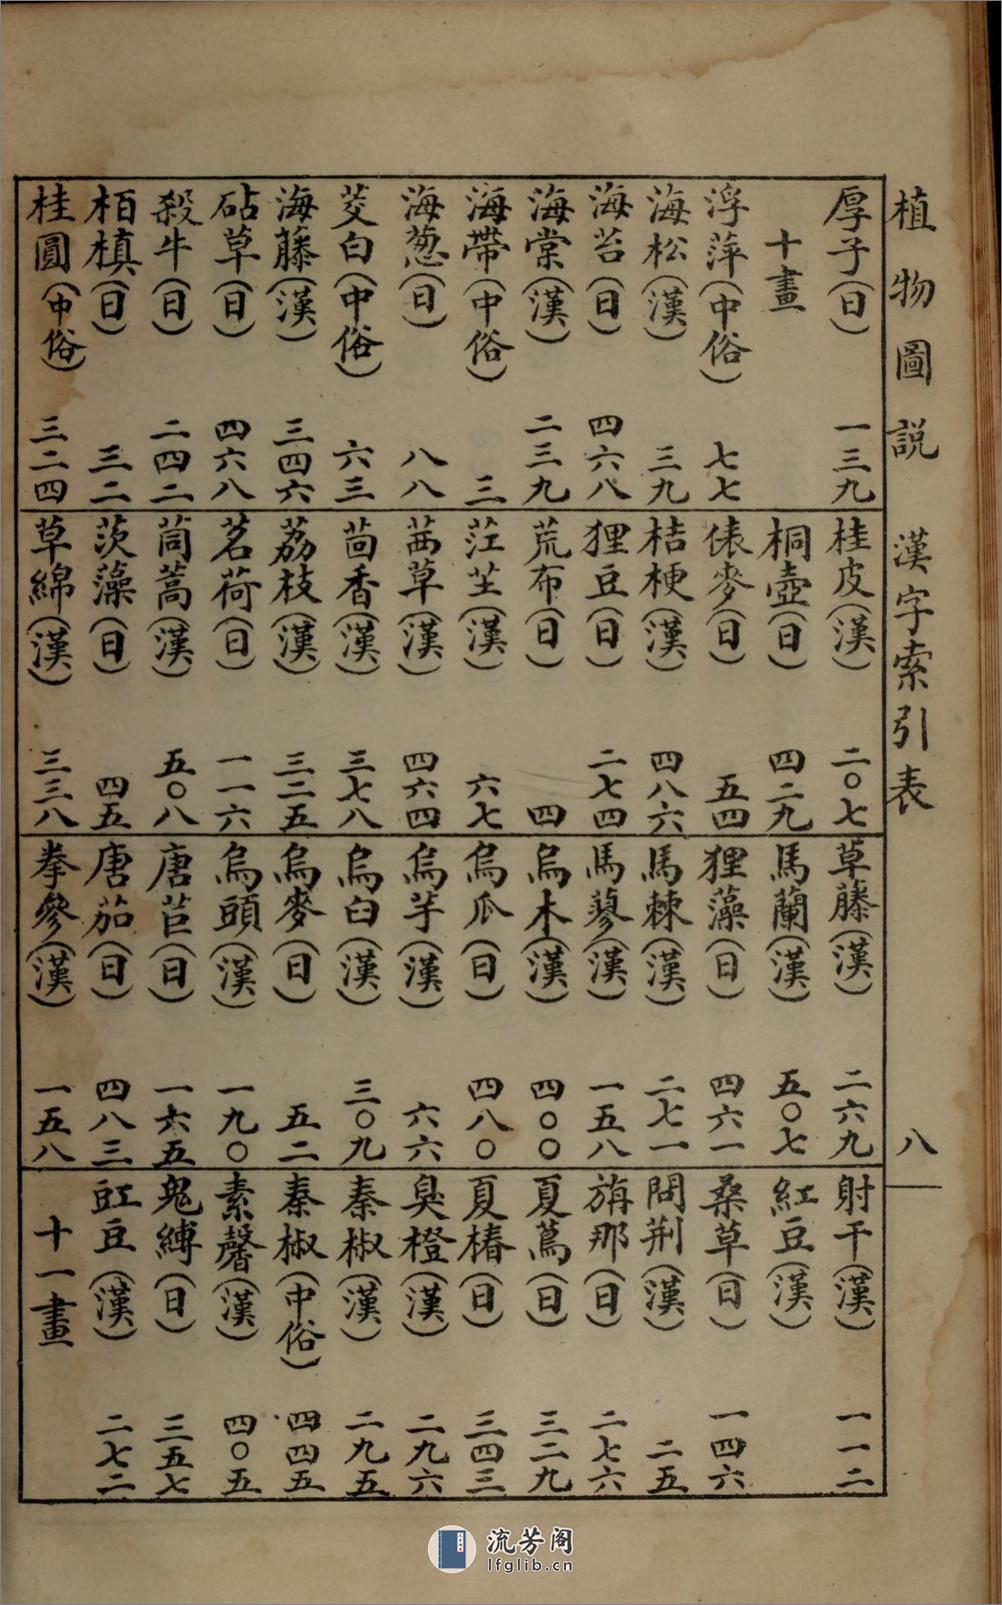 植物圖説 漢字索引表 八
厚子(日) 一三九
十畫
浮萍(中俗) 七七
海松(漢) 三九
海苔(日) 四六八
海棠(漢) 二三九
海帶(中俗) 三
海葱(日) 八八
茭白(中俗) 六三
海藤(漢) 三四六
砧草(日) 四六八
殺牛(日) 二四二
栢槙(日) 三二
桂圓(中俗) 三二四
桂皮(漢) 二〇七
桐壺(日) 四二九
俵麥(日) 五四
桔梗(漢) 四八六
狸豆(日) 二七四
荒布(日) 四
茳芏(漢) 六七
茜草(漢) 四六四
茴香(漢) 三七八
荔枝(漢) 三三五
茗荷(日) 一一六
茼蒿(漢) 五〇八
茨藻(日) 四五
草綿(漢) 三三八
草藤(漢) 二六九
馬蘭(漢) 五〇七
狸藻(日) 四六一
馬棘(漢) 二七一
馬蓼(漢) 一五八
烏木(漢) 四〇〇
烏瓜(日) 四八〇
烏芋(漢) 六六
烏臼(漢) 三〇九
烏麥(日) 五二
烏頭(漢) 一九〇
唐苣(日) 一六五
唐茄(日) 四八三
拳參(漢) 一五八
射干(漢) 一一二
紅豆(漢)
桑草(日) 一四六
問荆(漢) 二五
旃那(日) 二七六
夏蔦(日) 三二九
夏椿(日) 三四三
臭橙(漢) 二九六
秦椒(漢) 二九五
秦椒(中俗) 四四五
素馨(漢) 四〇五
鬼縛(日) 三五七
豇豆(漢) 二七二
十一畫
流芳阁
lfglib.cn